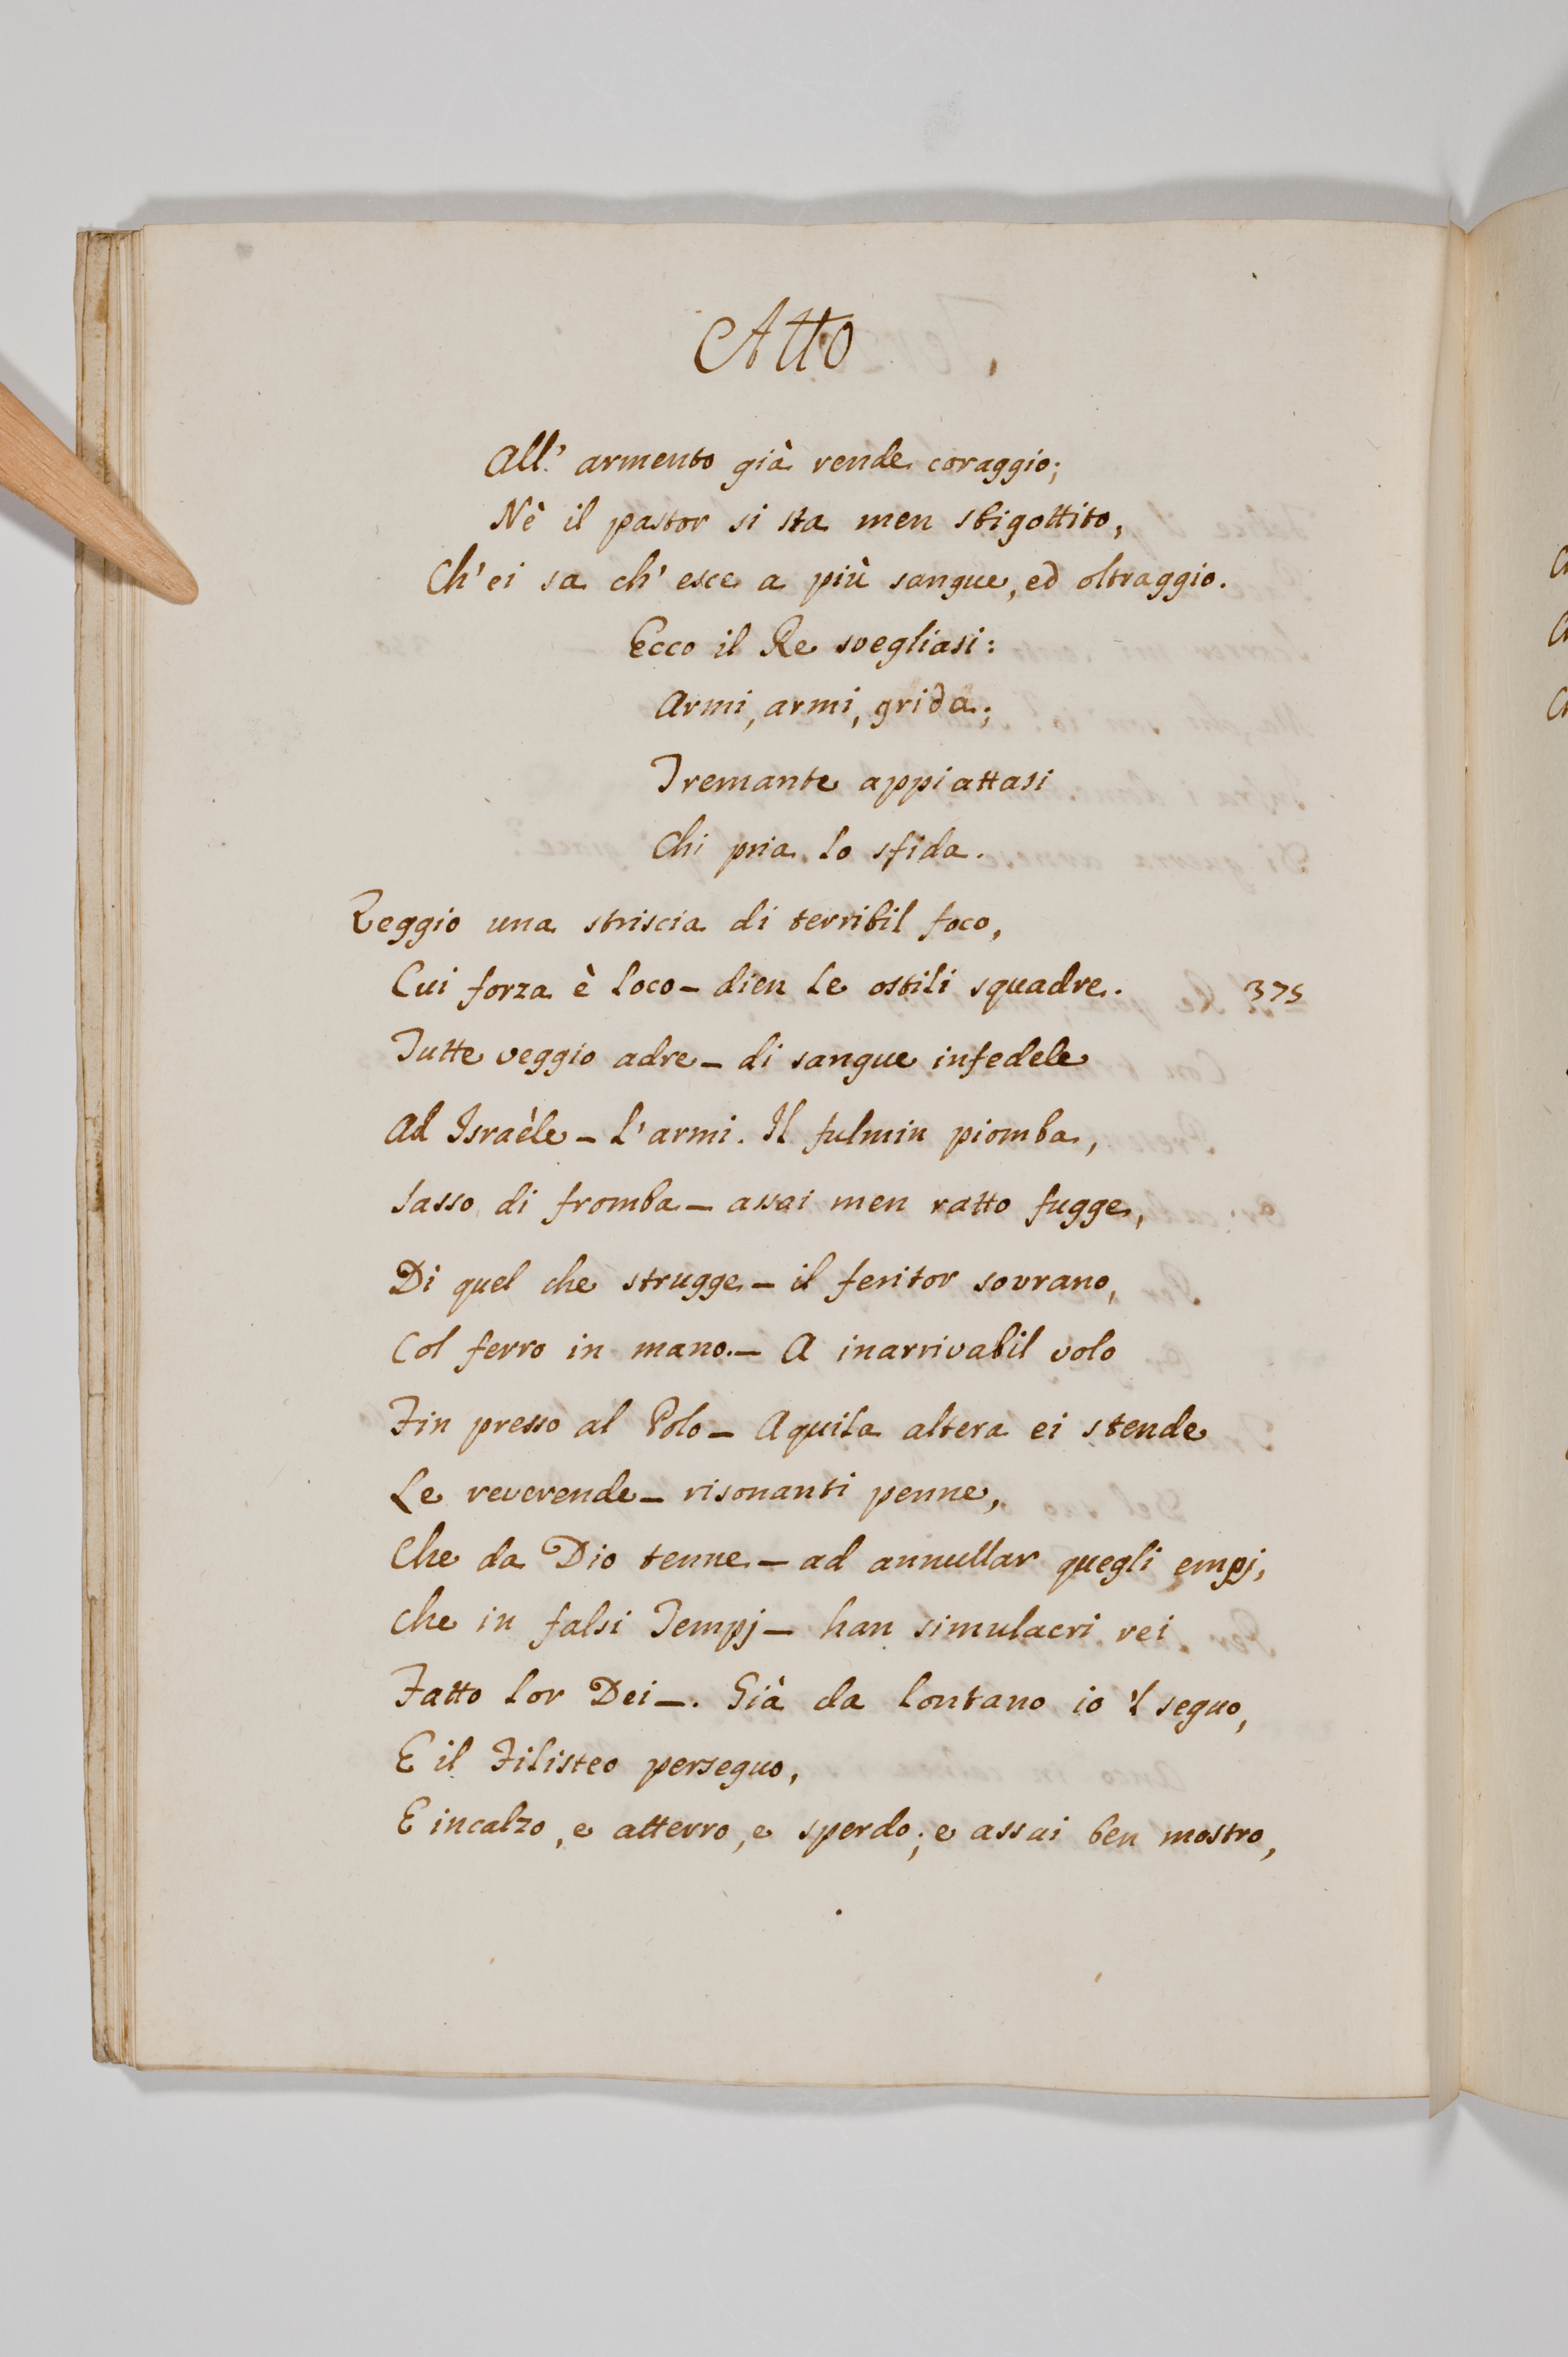 Atto
All' armento già rende coraggio;
Nè il pastor si sta men sbigottito,
Ch' ei sa ch' esce a più sangue, ed oltraggio.
Ecco il Re svegliasi:
Armi, armi, grida;
Tremante appiattasi
Chi pria lo sfida.
Veggio una striscia di terribil foco,
Cui forza è loco – dien le ostili squadre. 375
Tutte veggio adre – di sangue infedele
Ad Israèle – l'armi. Il fulmin piomba,
Sasso di fromba – assai men ratto fugge,
Di quel che strugge – il feritor sovrano,
Col ferro in mano. – A inarrivabil volo
Fin presso al Polo – Aquila altera ei stende
Le reverende – risonanti penne,
Che da Dio tenne – ad annullar quegli empj,
Che in falsi Tempj – han simulacri rei
Fatto lor Dei –. Già da lontano io 'l seguo,
E il Filisteo perseguo,
E incalzo, e atterro, e sperdo; e assai ben mostro,